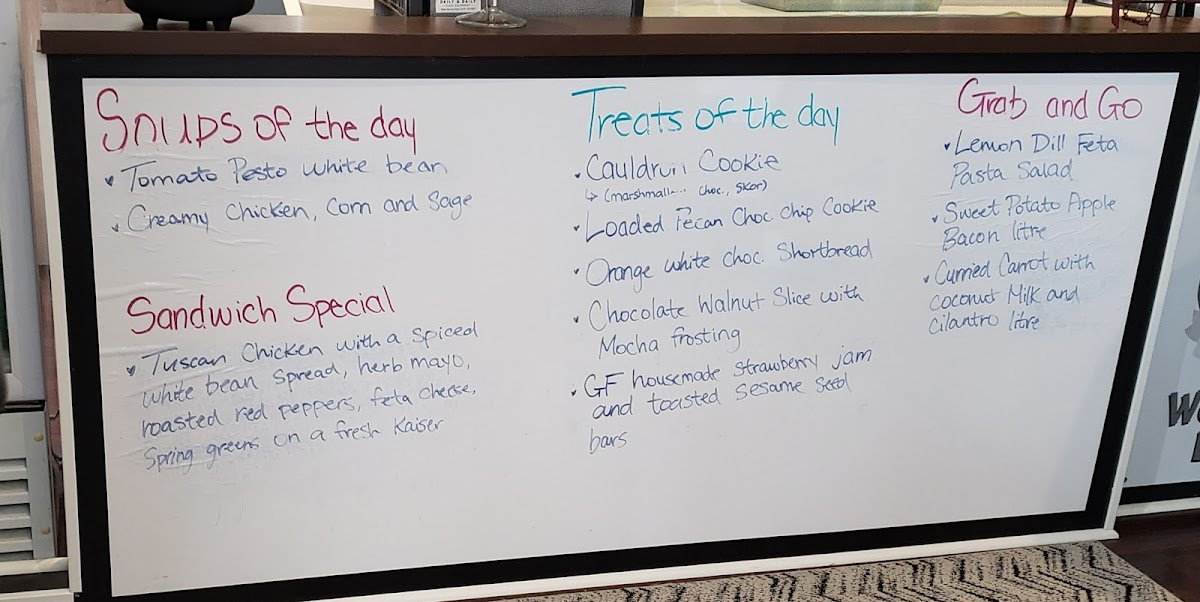 Soups of the day
Tomato Pesto white bean
Creamy Chicken, Corn and Sage
Sandwich Special
Tuscan Chicken with a spiced
white bean spread, herb mayo,
roasted red peppers, feta cheese,
Spring greens on a fresh Kaiser
Treats of the day
Cauldron Cookie
↳ (marshmall... choc., SKor)
Loaded Pecan Choc chip Cookie
Orange white choc. Shortbread
Chocolate Walnut Slice with
Mocha frosting
GF housemade strawberry jam
and toasted sesame seed
bars
Grab and Go
Lemon Dill Feta
Pasta Salad
Sweet Potato Apple
Bacon litre
Curried Carrot with
coconut Milk and
cilantro litre